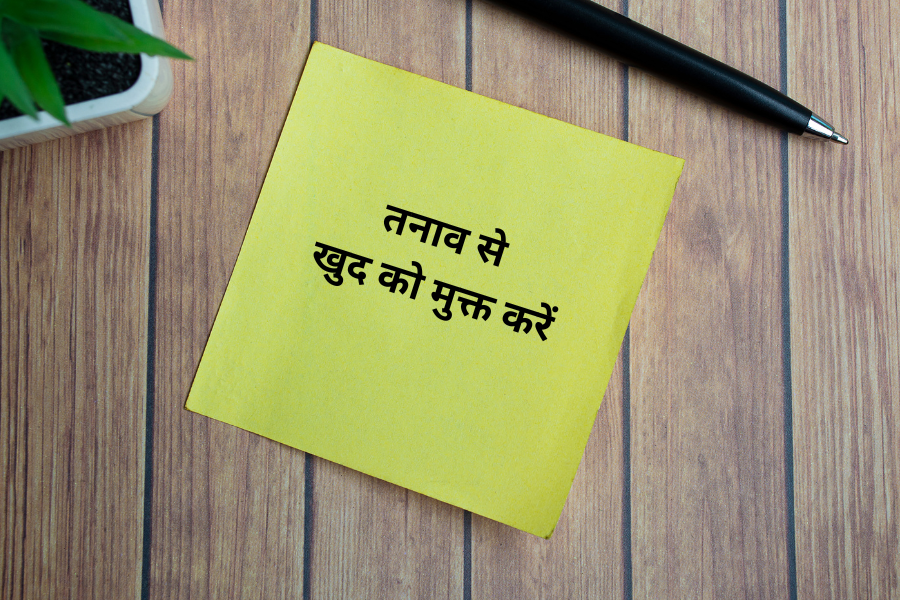 तनाव से
खुद को मुक्त करें